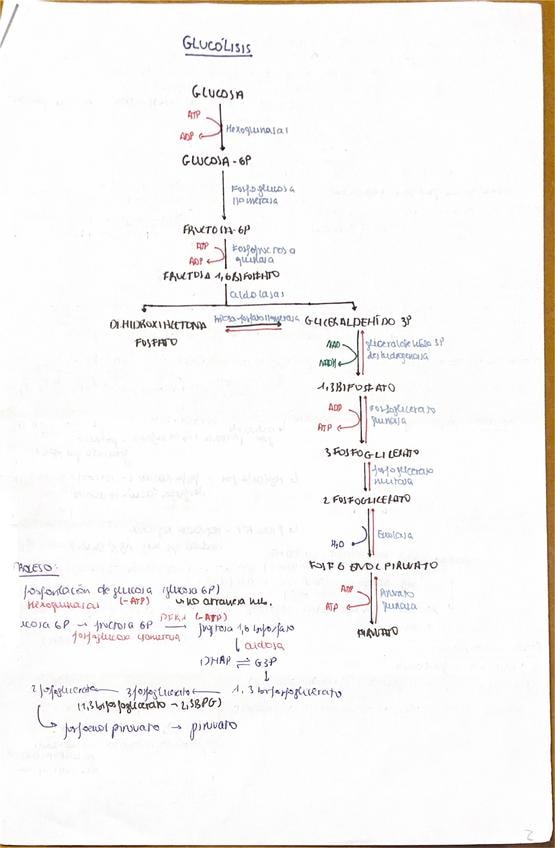 GLUCÓLISIS
GLUCOSA
ATP
ADP
Hexoquinasas
GLUCOSA-6P
Fosfoglucosa
isomerasa
FRUCTOSA-6P
ATP
ADP
Fosfofructosa
quinasa
FRUCTOSA 1,6 BIFOSFATO
aldolasas
DIHIDROXIACETONA
FOSFATO
triosa-fosfato isomerasa
GLICERALDEHÍDO 3P
NAD
NADH
gliceraldehido 3P
deshidrogenasa
1,3 BIFOSFATO
ADP
ATP
Fosfoglicerato
quinasa
3 FOSFOGLICERATO
fosfoglicerato
mutasa
2 FOSFOGLICERATO
H₂O
Enolasa
FOSFOENOLPIRUVATO
ADP
ATP
Piruvato
quinasa
PIRUVATO
PROCESO:
fosforilación de glucosa (glucosa 6P)
Hexoquinasas (-ATP)
ucosa 6P → fructosa 6P → fructosa 1,6 bifosfato
(-ATP)
fosfoglucosa isomerasa
↓ aldosa
DHAP ⇌ G3P
↓
2 fosfoglicerato ← 3 fosfoglicerato ← 1,3 bifosfoglicerato
(1,3 bifosfoglicerato → 2,3BPG)
→ fosfoenol piruvato → piruvato
2